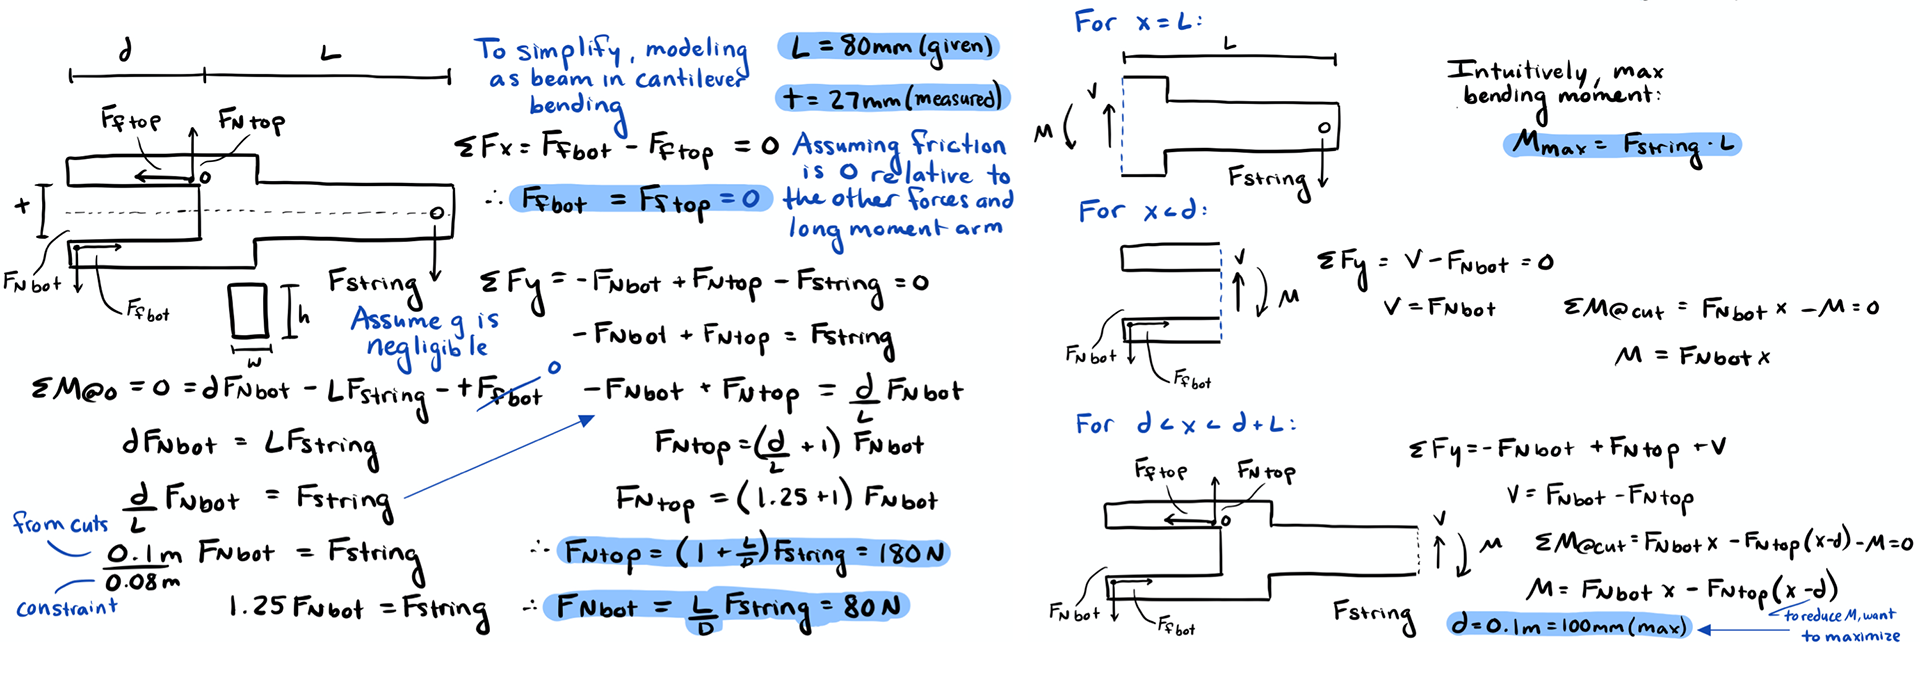 d
L
F_f top
F_N top
o
t
F_N bot
F_f bot
Fstring
h
w
Assume g is
negligible
To simplify, modeling
as beam in cantilever
bending
L = 80mm (given)
t = 27mm (measured)
ΣFx = F_f bot - F_f top = 0
∴ F_f bot = F_f top = 0
Assuming friction
is 0 relative to
the other forces and
long moment arm
ΣFy = -F_N bot + F_N top - Fstring = 0
-F_N bot + F_N top = Fstring
ΣM@o = 0 = dF_N bot - LFstring - tF_f bot 0
dF_N bot = LFstring
d/L F_N bot = Fstring
from cuts
0.1m/0.08m F_N bot = Fstring
constraint
1.25 F_N bot = Fstring
-F_N bot + F_N top = d/L F_N bot
F_N top = (d/L + 1) F_N bot
F_N top = (1.25 + 1) F_N bot
∴ F_N top = (1 + L/D) Fstring = 180 N
∴ F_N bot = L/D Fstring = 80 N
For x = L:
L
V
M
Fstring
Intuitively, max
bending moment:
Mmax = Fstring · L
For x < d:
V
M
F_N bot
F_f bot
ΣFy = V - F_N bot = 0
V = F_N bot
ΣM@cut = F_N bot x - M = 0
M = F_N bot x
For d < x < d + L:
F_f top
F_N top
o
V
M
F_N bot
F_f bot
Fstring
ΣFy = -F_N bot + F_N top + V
V = F_N bot - F_N top
ΣM@cut = F_N bot x - F_N top (x-d) - M = 0
M = F_N bot x - F_N top (x-d)
to reduce M, want
to maximize
d = 0.1m = 100mm (max)